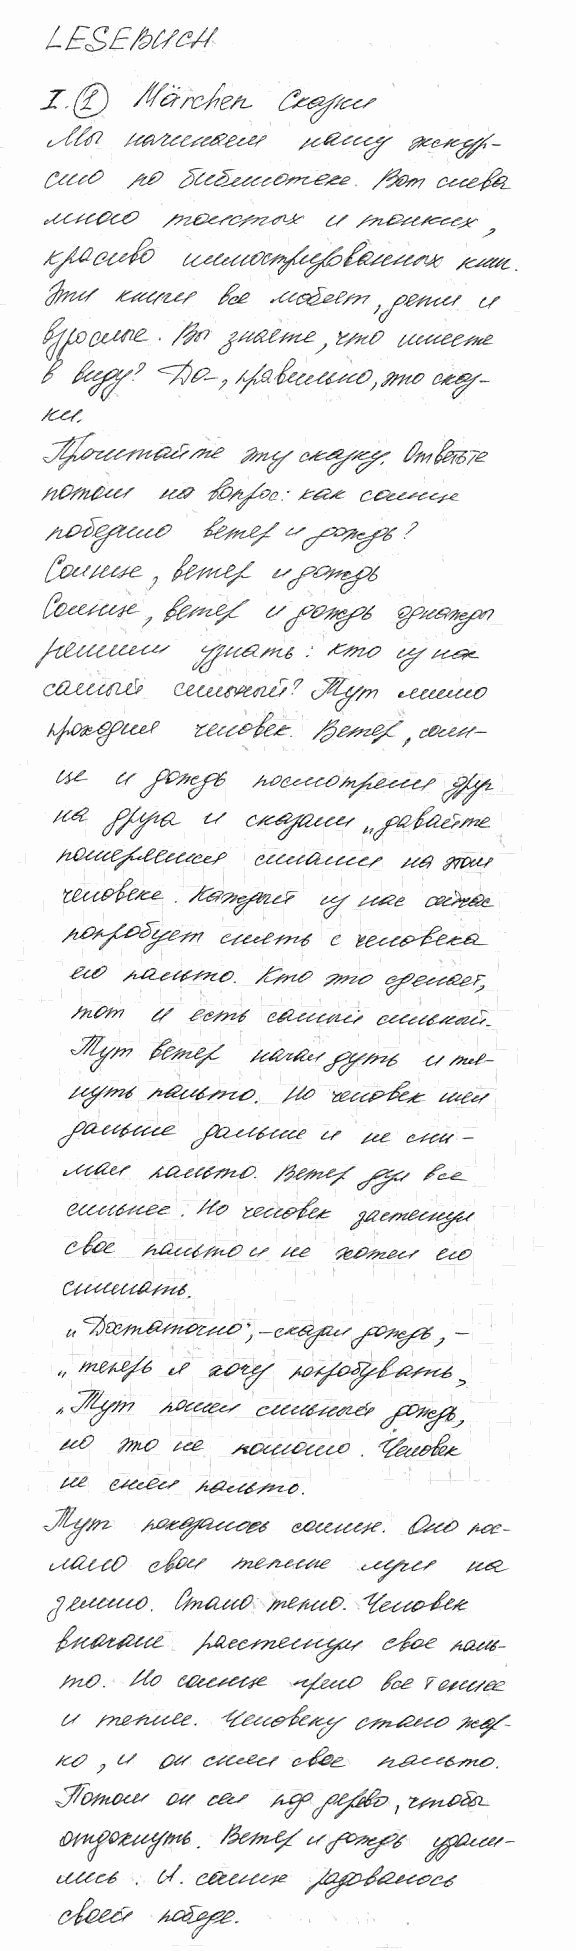 LESEBUCH
I. 1 Märchen Сказки
Мы начинаем нашу экскур-
сию по библиотеке. Вот слева
много толстых и тонких,
красиво иллюстрированных книг.
Эти книги все любят, дети и
взрослые. Вы знаете, что имеете
в виду? Да-, правильно, это сказ-
ки.
Прочитайте эту сказку. Ответьте
потом на вопрос: как солнце
победило ветер и дождь?
Солнце, ветер и дождь
Солнце, ветер и дождь однажды
решили узнать: кто из нас
самый сильный? Тут мимо
проходил человек. Ветер, солн-
це и дождь посмотрели друг
на друга и сказали „давайте
померяемся силами на этом
человеке. Каждый из нас сейчас
попробует снять с человека
его пальто. Кто это сделает,
тот и есть самый сильный.
Тут ветер начал дуть и тя-
нуть пальто. Но человек шел
дальше дальше и не сни-
мал пальто. Ветер дул все
сильнее. Но человек застегнул
свое пальто и не хотел его
снимать.
„Достаточно", -сказал дождь, -
„теперь я хочу попробувать,
„Тут пошел сильный дождь,
но это не помогло. Человек
не снял пальто.
Тут показалось солнце. Оно пос-
лало свои теплые лучи на
землю. Стало тепло. Человек
вначале расстегнул свое паль-
то. Но солнце грело все теплее
и теплее. Человеку стало жар-
ко, и он снял свое пальто.
Потом он сел под дерево, чтобы
отдохнуть. Ветер и дождь удали-
лись. И. солнце радовалось
своей победе.